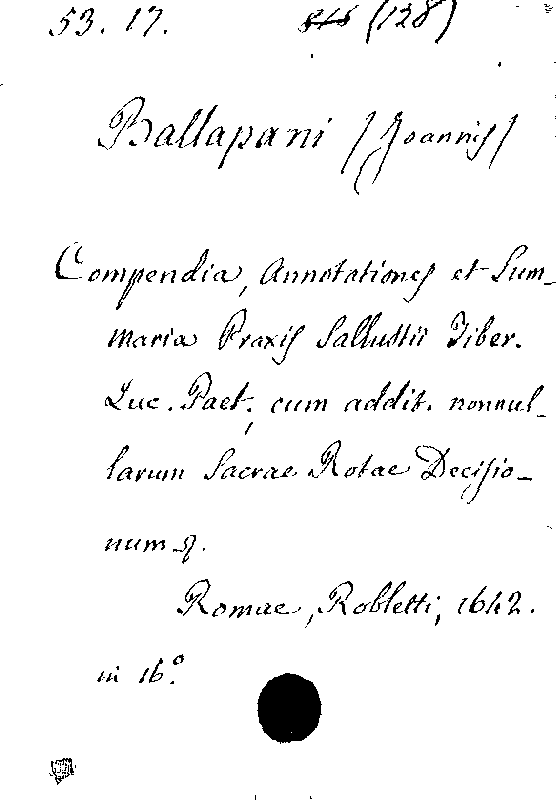 53. 17. (128)
Ballapani (Joannis)
Compendia, Annotationes et Sum-
maria Praxis Sallustii Tiber.
Luc. Paet., cum addit. nonnul-
larum Sacrae Rotae Decisio-
num
Romae, Robletti, 1642.
in 16.º